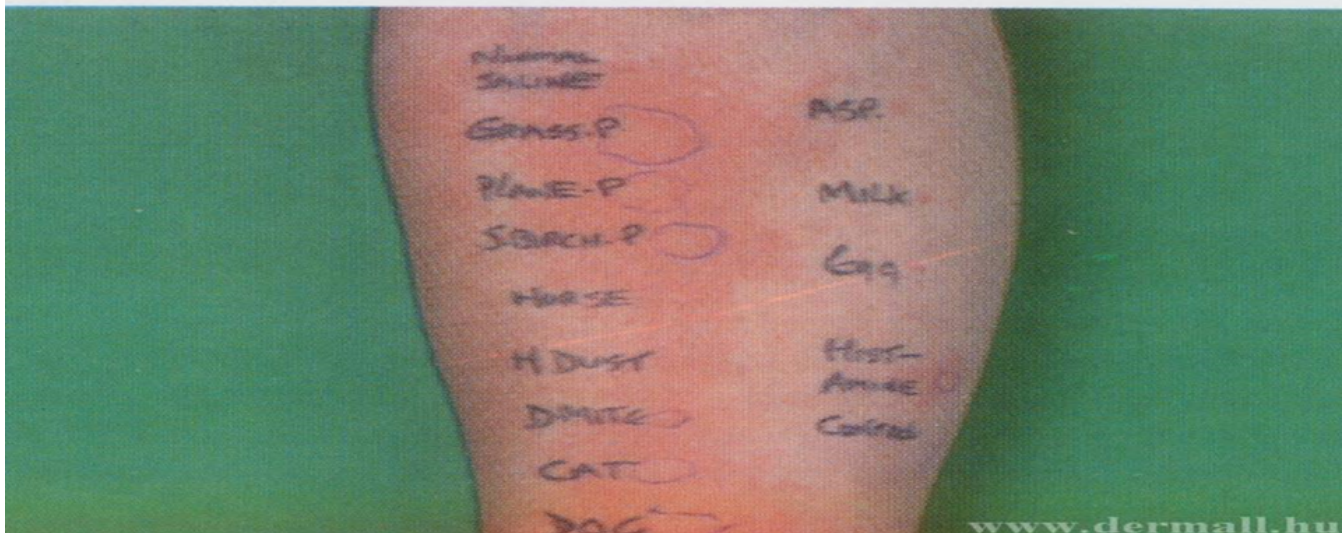 NORMAL
SALINE
GRASS-P
PLANE-P
S.BIRCH-P
HORSE
H DUST
D.MITE
CAT
DOG
ASP.
MILK
Egg
HIST-
AMINE
Control
www.dermall.hu